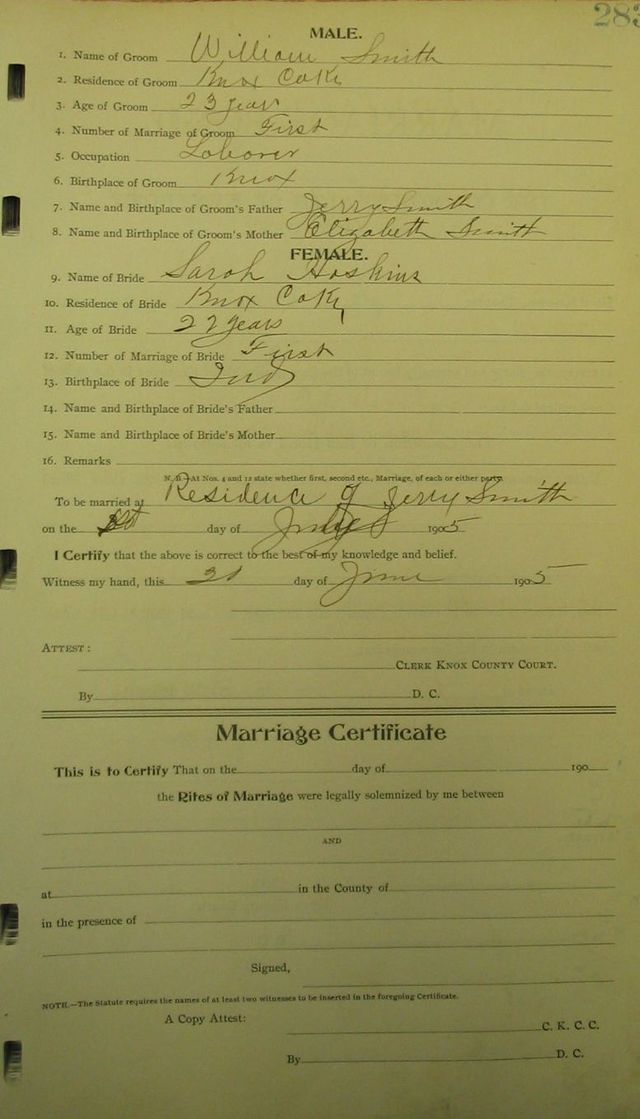 283
MALE.
1. Name of Groom William Smith
2. Residence of Groom Knox Co Ky
3. Age of Groom 23 years
4. Number of Marriage of Groom First
5. Occupation Laborer
6. Birthplace of Groom Knox
7. Name and Birthplace of Groom's Father Jerry Smith
8. Name and Birthplace of Groom's Mother Elizabeth Smith
FEMALE.
9. Name of Bride Sarah Hoskins
10. Residence of Bride Knox Co Ky
11. Age of Bride 22 years
12. Number of Marriage of Bride First
13. Birthplace of Bride Ind
14. Name and Birthplace of Bride's Father
15. Name and Birthplace of Bride's Mother
16. Remarks
N. B.—At Nos. 4 and 12 state whether first, second etc., Marriage, of each or either party.
To be married at Residence of Jerry Smith
on the day of 1905
I Certify that the above is correct to the best of my knowledge and belief.
Witness my hand, this day of June 1905
ATTEST:
CLERK KNOX COUNTY COURT.
By D. C.
Marriage Certificate
This is to Certify That on the day of 190
the Rites of Marriage were legally solemnized by me between
AND
at in the County of
in the presence of
Signed,
NOTE.—The Statute requires the names of at least two witnesses to be inserted in the foregoing Certificate.
A Copy Attest:
C. K. C. C.
By D. C.